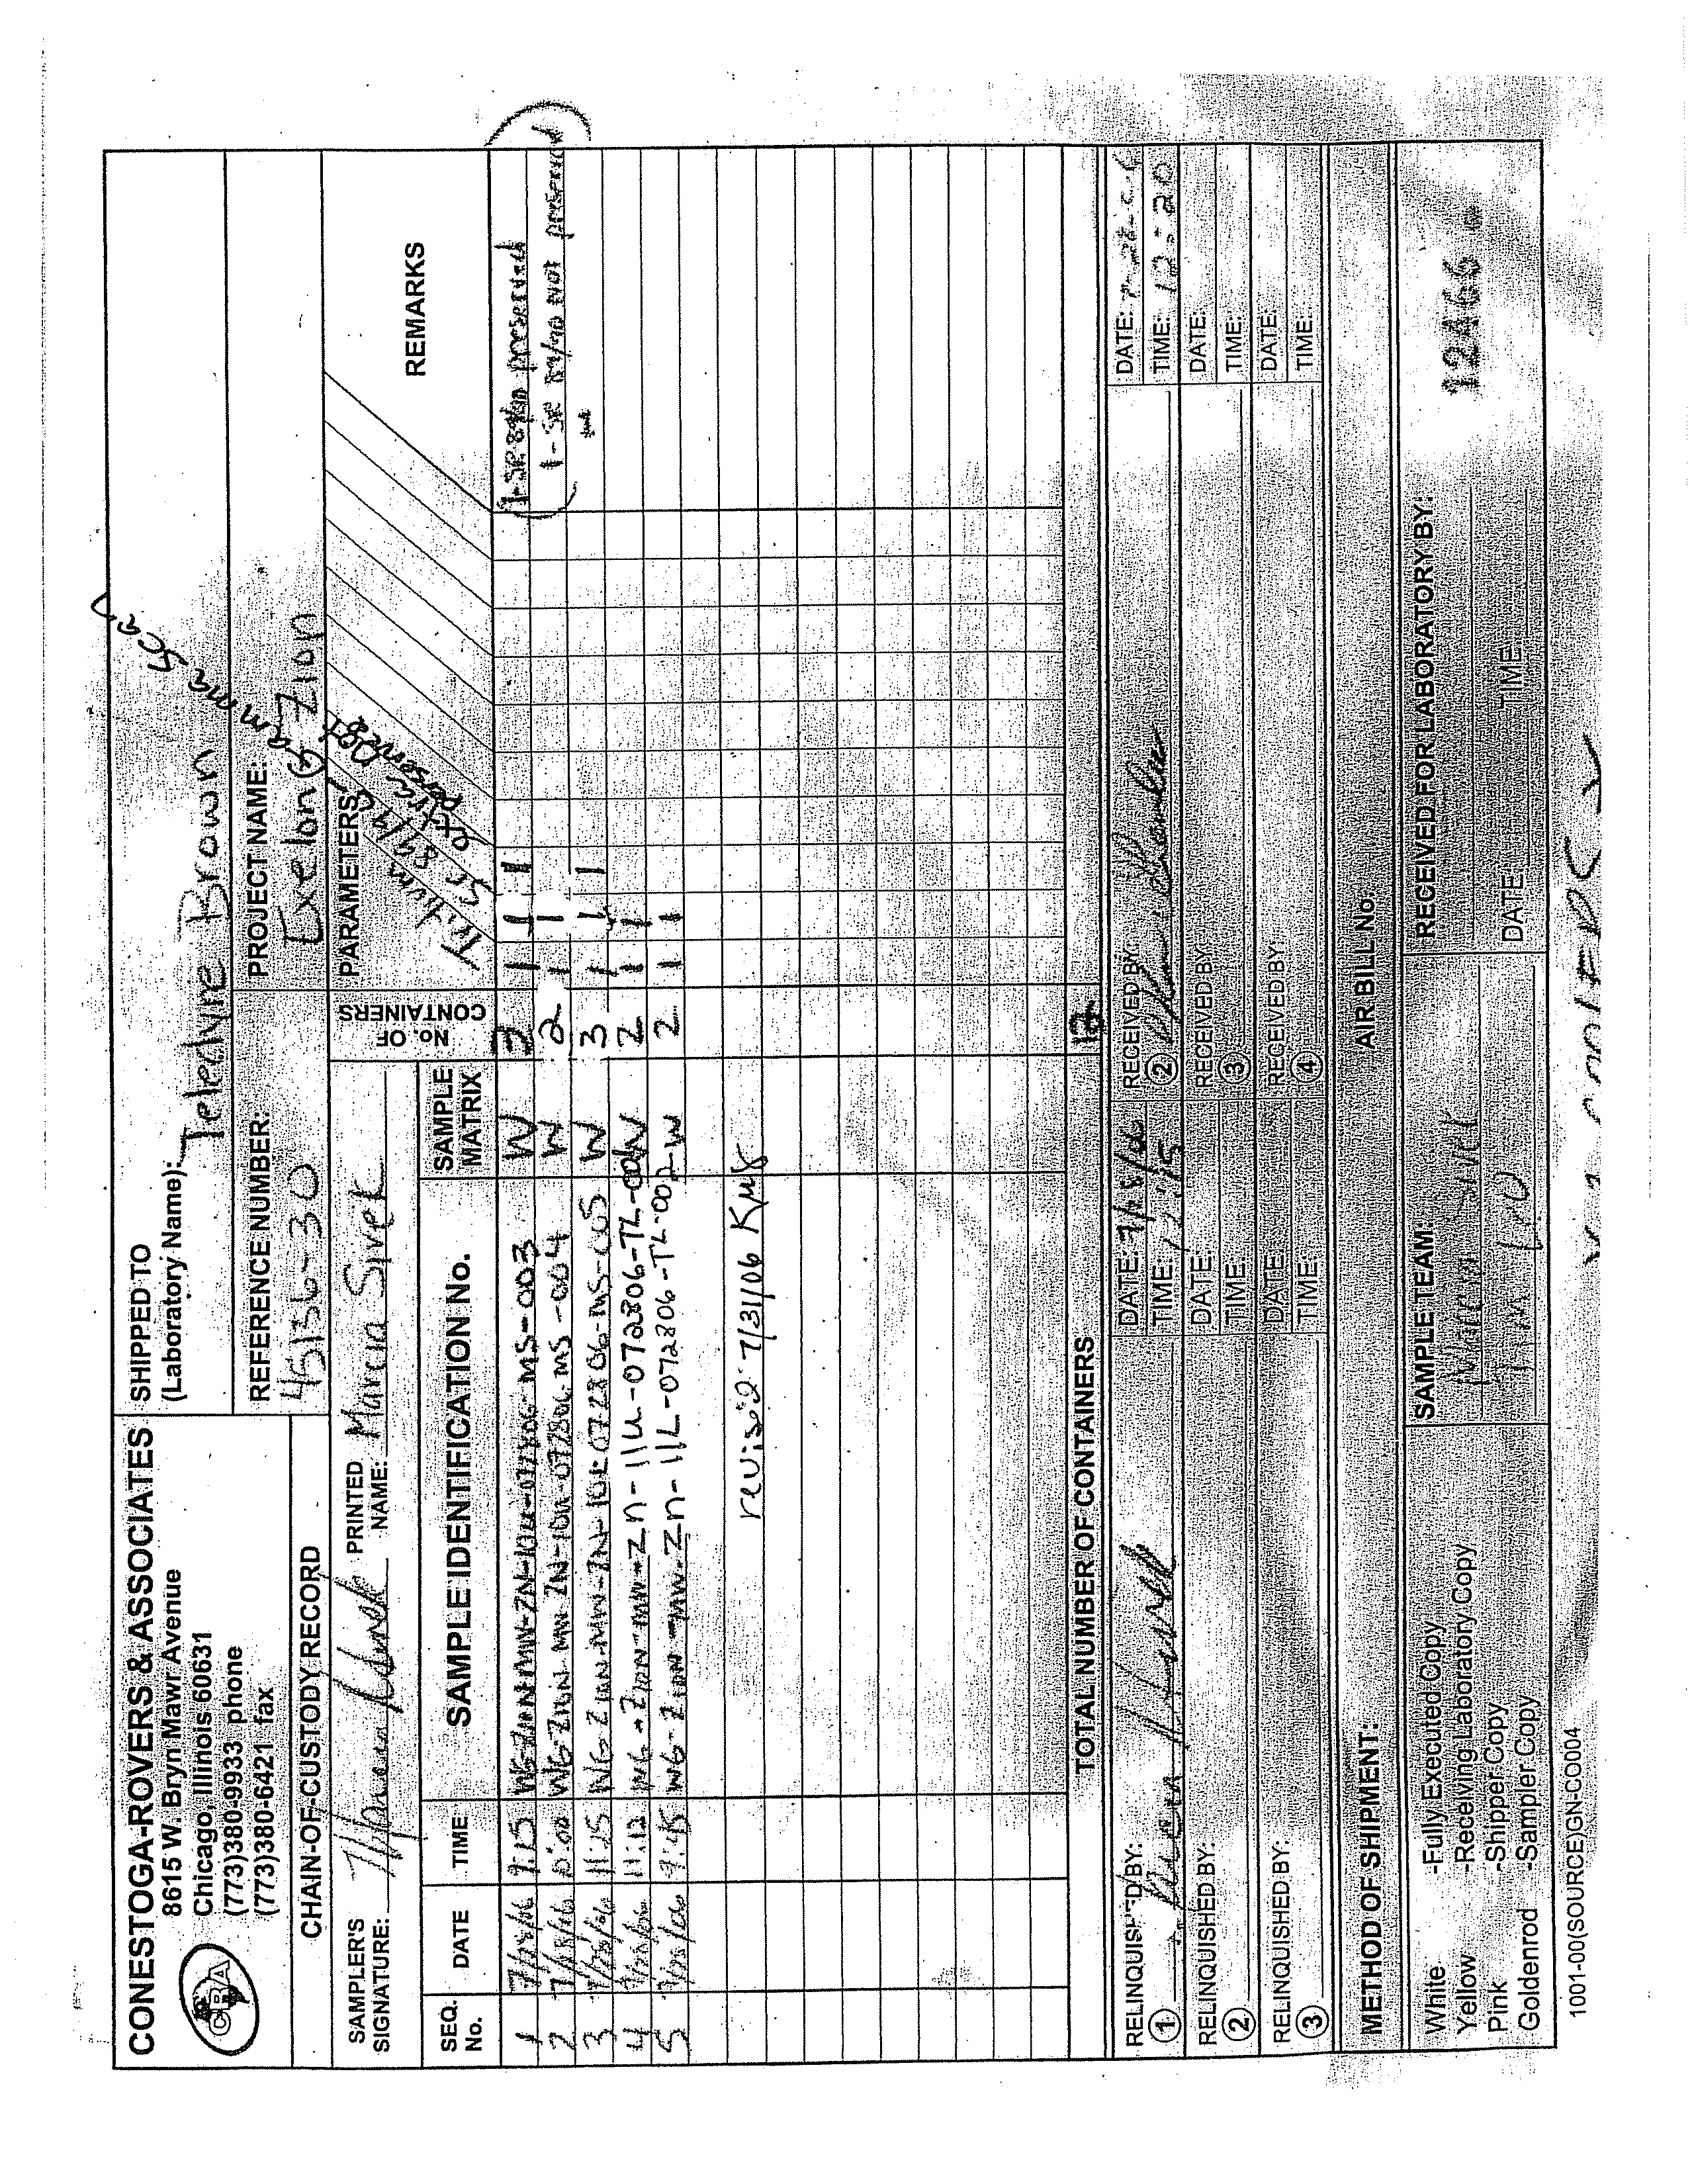 CONESTOGA-ROVERS & ASSOCIATES
8615 W. Bryn Mawr Avenue
Chicago, Illinois 60631
(773)380-9933 phone
(773)380-6421 fax
CRA
SHIPPED TO
(Laboratory Name): Teledyne Brown
CHAIN-OF-CUSTODY RECORD
REFERENCE NUMBER:
45136-30
PROJECT NAME:
Exelon Zion
SAMPLER'S
SIGNATURE:
PRINTED
NAME: Marcia Sivek
SEQ.
No.
DATE
TIME
SAMPLE IDENTIFICATION No.
SAMPLE
MATRIX
No. OF
CONTAINERS
PARAMETERS
Tritium
Sr 89/90
gamma scan
REMARKS
1 7/28/06 9:25 WG-ZION-MW-ZN-10U-072806-MS-003 W 3 1 1 1 1-SR 89/90 preserved
2 7/28/06 WG-ZION-MW-ZN-10U-072806-MS-004 W 2 1 1 1-SR 89/90 not preserved
3 7/28/06 11:25 WG-ZION-MW-ZN-10L-072806-MS-005 W 3 1 1 1
4 7/28/06 11:12 WG-ZION-MW-Zn-11U-072806-TL- W 2 1 1
5 7/28/06 9:45 WG-ZION-MW-Zn-11L-072806-TL-002 W 2 1 1
revised 7/31/06 KMS
TOTAL NUMBER OF CONTAINERS 12
RELINQUISHED BY:
1
DATE: 7/28/06
TIME: 12:15
RECEIVED BY:
2
DATE:
TIME: 12:20
RELINQUISHED BY:
2
DATE:
TIME:
RECEIVED BY:
3
DATE:
TIME:
RELINQUISHED BY:
3
DATE:
TIME:
RECEIVED BY:
4
DATE:
TIME:
METHOD OF SHIPMENT:
AIR BILL No.
White -Fully Executed Copy
Yellow -Receiving Laboratory Copy
Pink -Shipper Copy
Goldenrod -Sampler Copy
SAMPLE TEAM:
Marcia Sivek
RECEIVED FOR LABORATORY BY:
DATE: TIME:
12466
1001-00(SOURCE)GN-CO004
COOLERS